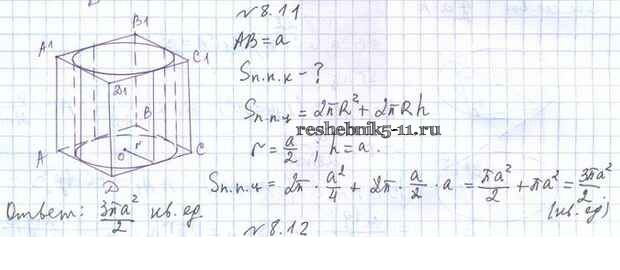 B1
A1
C1
D1
B
A
O
r
C
D
№ 8.11
AB = a
Sп.п.к - ?
Sп.п.ц = 2πR² + 2πRh
reshebnik5-11.ru
r = a/2 ; h = a.
Sп.п.ц = 2π · a²/4 + 2π · a/2 · a = πa²/2 + πa² = 3πa²/2 (кв. ед)
Ответ: 3πa²/2 кв. ед.
№ 8.12